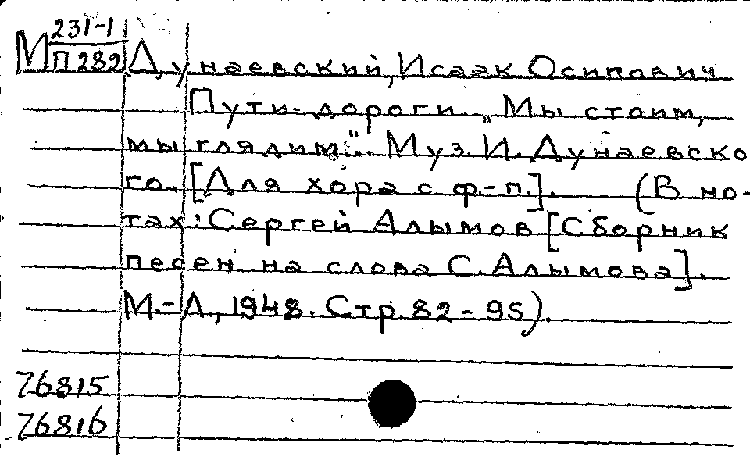 М 231-1
П 282 Дунаевский, Исаак Осипович
Пути-дороги. „Мы стоим,
мы глядим". Муз. И. Дунаевско
го. [Для хора с ф-п.]. (В но-
тах: Сергей Алымов [Сборник
песен на слова С. Алымова].
М.-Л., 1948. Стр. 82-95).
76815
76816